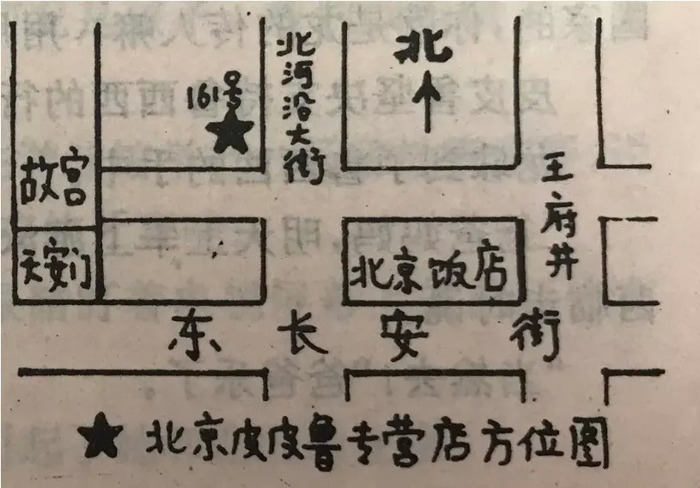 北
北河沿大街
161号
故宫
王府井
天安门
北京饭店
东长安街
★北京皮皮鲁专营店方位图